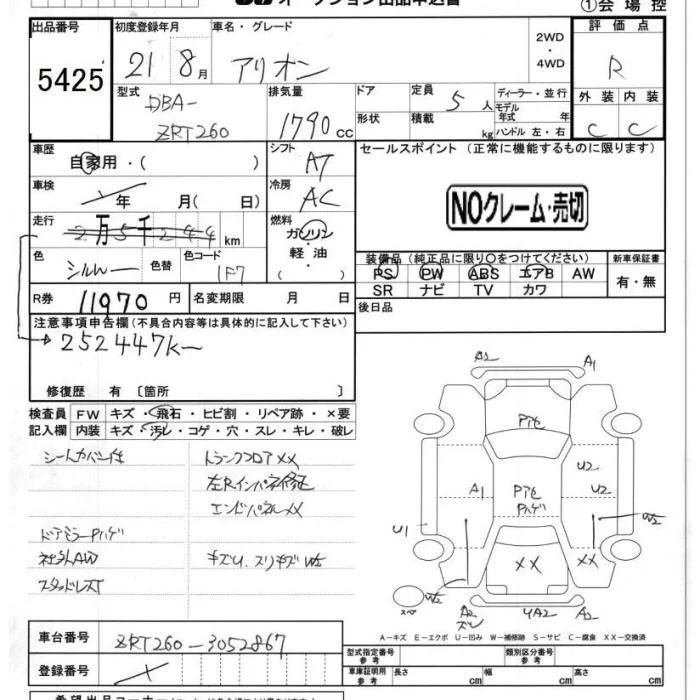 オークション出品申込書
①会場控
出品番号
5425
初度登録年月
21 8月
車名・グレード
アリオン
2WD
・
4WD
評価点
R
型式
DBA-
ZRT260
排気量
1790cc
ドア
形状
定員
5人
積載
kg
ディーラー・並行
モデル
年式 年
ハンドル 左・右
外装 内装
C C
車歴
自家用・( )
シフト
AT
セールスポイント (正常に機能するものに限ります)
車検
年 月( 日)
冷房
AC
NOクレーム・売切
走行
2万5千244km
燃料
ガソリン
軽油
・
色
シルバー
色替
色コード
1F7
装備品(純正品に限り○をつけてください)
PS PW ABS エアB AW
SR ナビ TV カワ
新車保証書
有・無
R券
11970円
名変期限 月 日
後日品
注意事項申告欄(不具合内容等は具体的に記入して下さい)
252447K
修復歴 有 〔箇所 〕
検査員
記入欄
FW キズ・飛石・ヒビ割・リペア跡・×要
内装 キズ・汚レ・コゲ・穴・スレ・キレ・破レ
シートカバー付
トランクフロアXX
左Rインパネ修正
エンドパネルXX
ドアミラーPハゲ
社外AW
キズU.スリキズW2
スタッドレスT
A2 A1
P下色
U2
A1 P下色 U2
Pハゲ
U1 W2
XX XX
W2 A2 YA2 A2
スペア
A-キズ E-エクボ U-凹み W-補修跡 S-サビ C-腐食 XX-交換済
車台番号
ZRT260-3052867
登録番号
型式指定番号
参考
類別区分番号
参考
車庫証明用
参考
長さ cm 幅 cm 高さ cm
希望出品コーナー